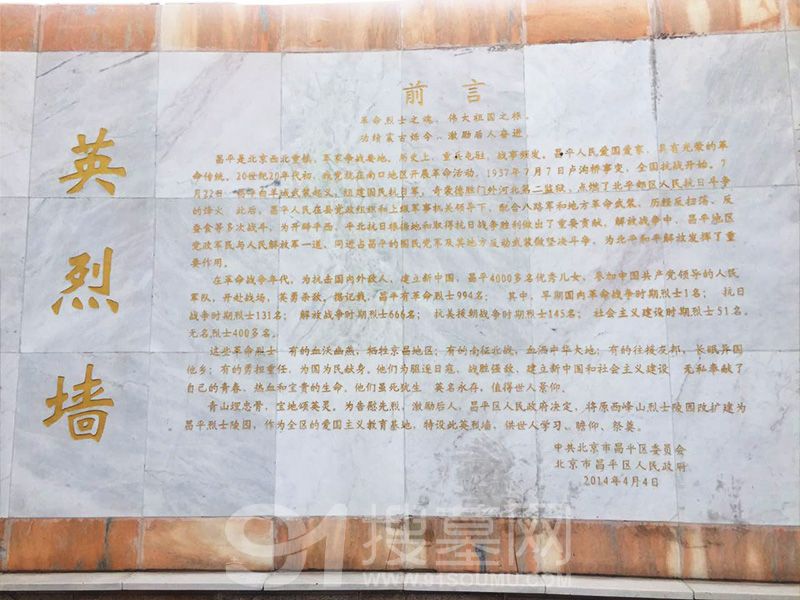 英烈墙
前言
革命烈士之魂，伟大祖国之根。
功绩震古烁今，激励后人奋进。
昌平是北京西北重镇，军家争战要地。历史上，重兵屯驻，战事频发。昌平人民爱国爱家，具有光荣的革
命传统。20世纪20年代初，我党就在南口地区开展革命活动。1937年7月7日卢沟桥事变，全国抗战开始。7
月22日，昌平白羊城武装起义，组建国民抗日军，奇袭德胜门外河北第二监狱，点燃了北平郊区人民抗日斗争
的烽火。此后，昌平人民在县党政组织和上级军事机关领导下，配合八路军和地方革命武装，历经反扫荡、反
蚕食等多次战斗，为开辟平西、平北抗日根据地和取得抗日战争胜利做出了重要贡献。解放战争中，昌平地区
党政军民与人民解放军一道，同进占昌平的国民党军及其地方反动武装做坚决斗争，为北平和平解放发挥了重
要作用。
在革命战争年代，为抗击国内外敌人，建立新中国，昌平4000多名优秀儿女，参加中国共产党领导的人民
军队，开赴战场，英勇杀敌。据记载，昌平有革命烈士994名；其中，早期国内革命战争时期烈士1名；抗日
战争时期烈士131名；解放战争时期烈士666名；抗美援朝战争时期烈士145名；社会主义建设时期烈士51名。
无名烈士400多名。
这些革命烈士，有的血沃幽燕，牺牲京昌地区；有的南征北战，血洒中华大地；有的往援友邦，长眠异国
他乡；有的勇担重任，为国为民献身。他们为驱逐日寇，战胜强敌，建立新中国和社会主义建设，无私奉献了
自己的青春、热血和宝贵的生命。他们虽死犹生，英名永存，值得世人景仰。
青山埋忠骨，宝地颂英灵。为告慰先烈，激励后人，昌平区人民政府决定，将原西峰山烈士陵园改扩建为
昌平烈士陵园，作为全区的爱国主义教育基地，特设此英烈墙，供世人学习、瞻仰、祭奠。
中共北京市昌平区委员会
北京市昌平区人民政府
2014年4月4日
91搜墓网
WWW.91SOUMU.COM